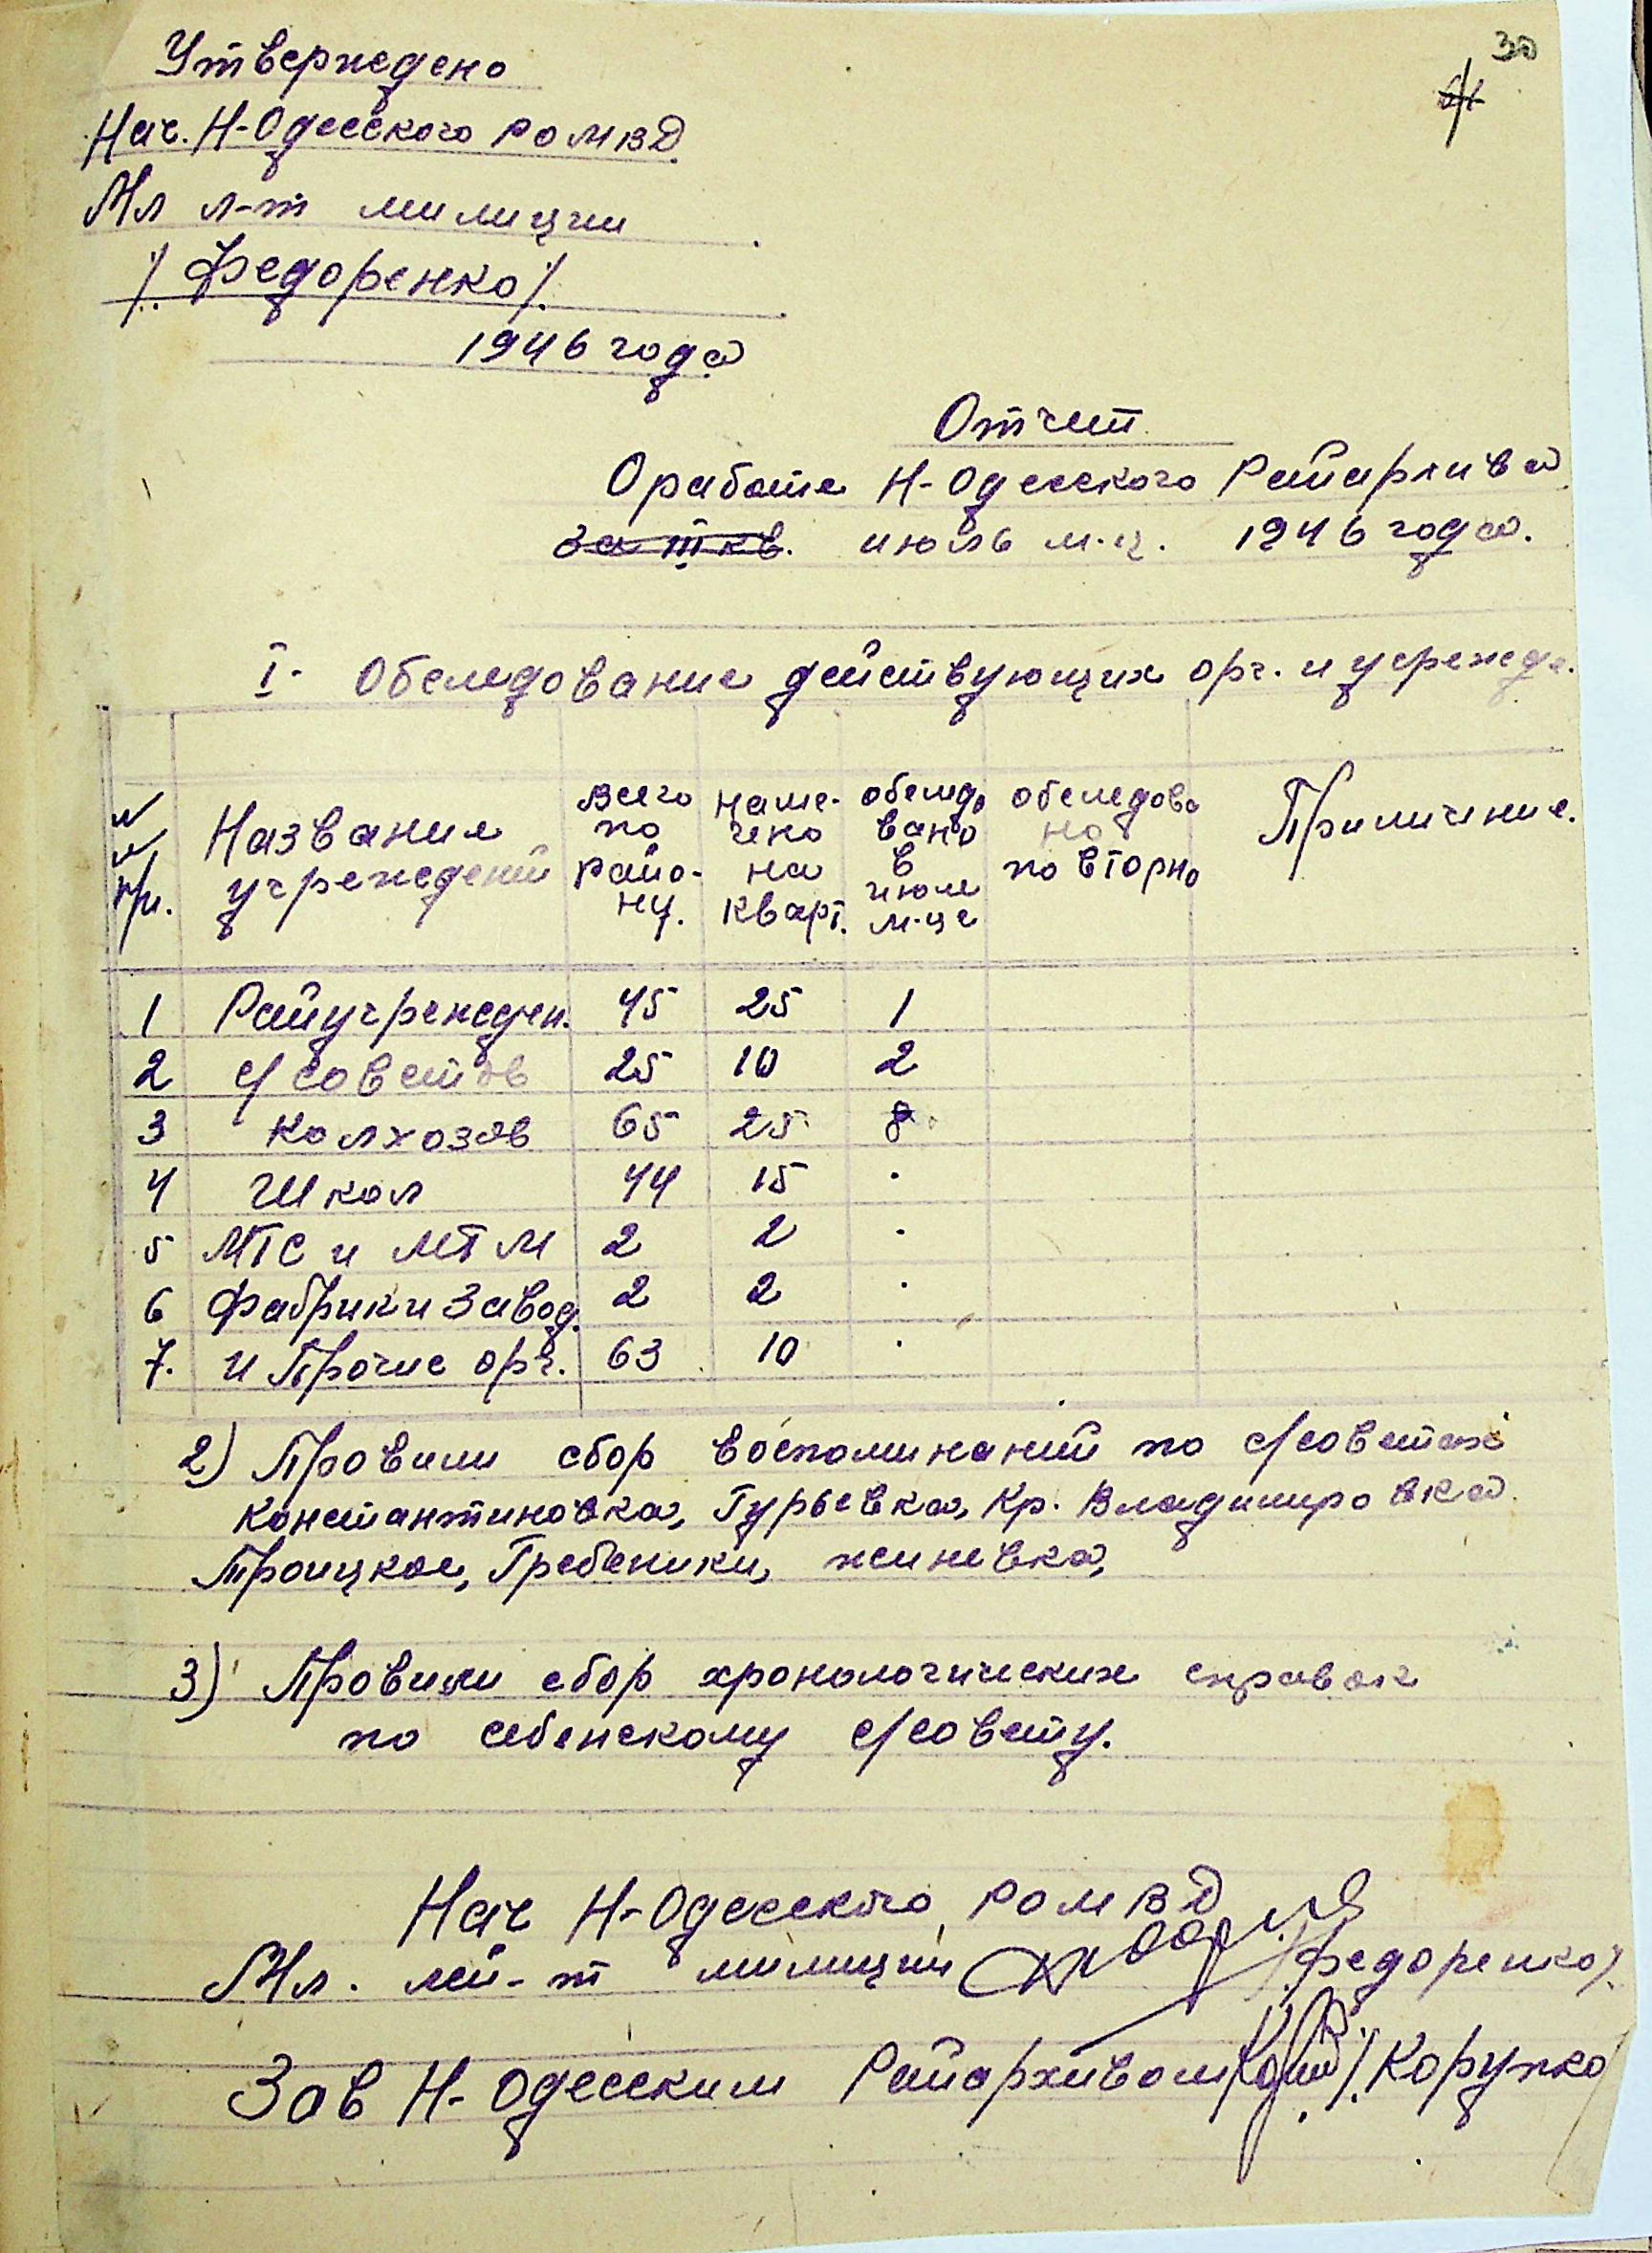 30
Утверждено
Нач. Н-Одесского РОМВД
Мл л-т милиции
/. Федоренко/.
1946 года
Отчет
О работе Н-Одесского Райархива
за III кв. июль м-ц. 1946 года.
I- Обследование действующих орг. и учрежде.
№ № п/п. Название учреждений всего по райо-ну. наме-чено на кварт. обследовано в июле м-це обследовано повторно Примичение.
1 Райучрежден. 45 25 1
2 с/советов 25 10 2
3 колхозов 65 25 8
4 Школ 44 15 -
5 МТС и МТМ 2 2 -
6 Фабрик и Завод. 2 2 -
7. и Прочие орг. 63 10 -
2) Провили сбор воспоминаний по с/советах
Константиновка, Гурьевка, Кр. Владимировка
Троицкое, Гребеники, жиневка,
3) Провили сбор хронологических справок
по себенскому с/совету.
Нач Н-Одесского РОМВД
Мл. лей-т милиции /Федоренко/.
Зав Н-Одесским Райархивом /. Корупко/